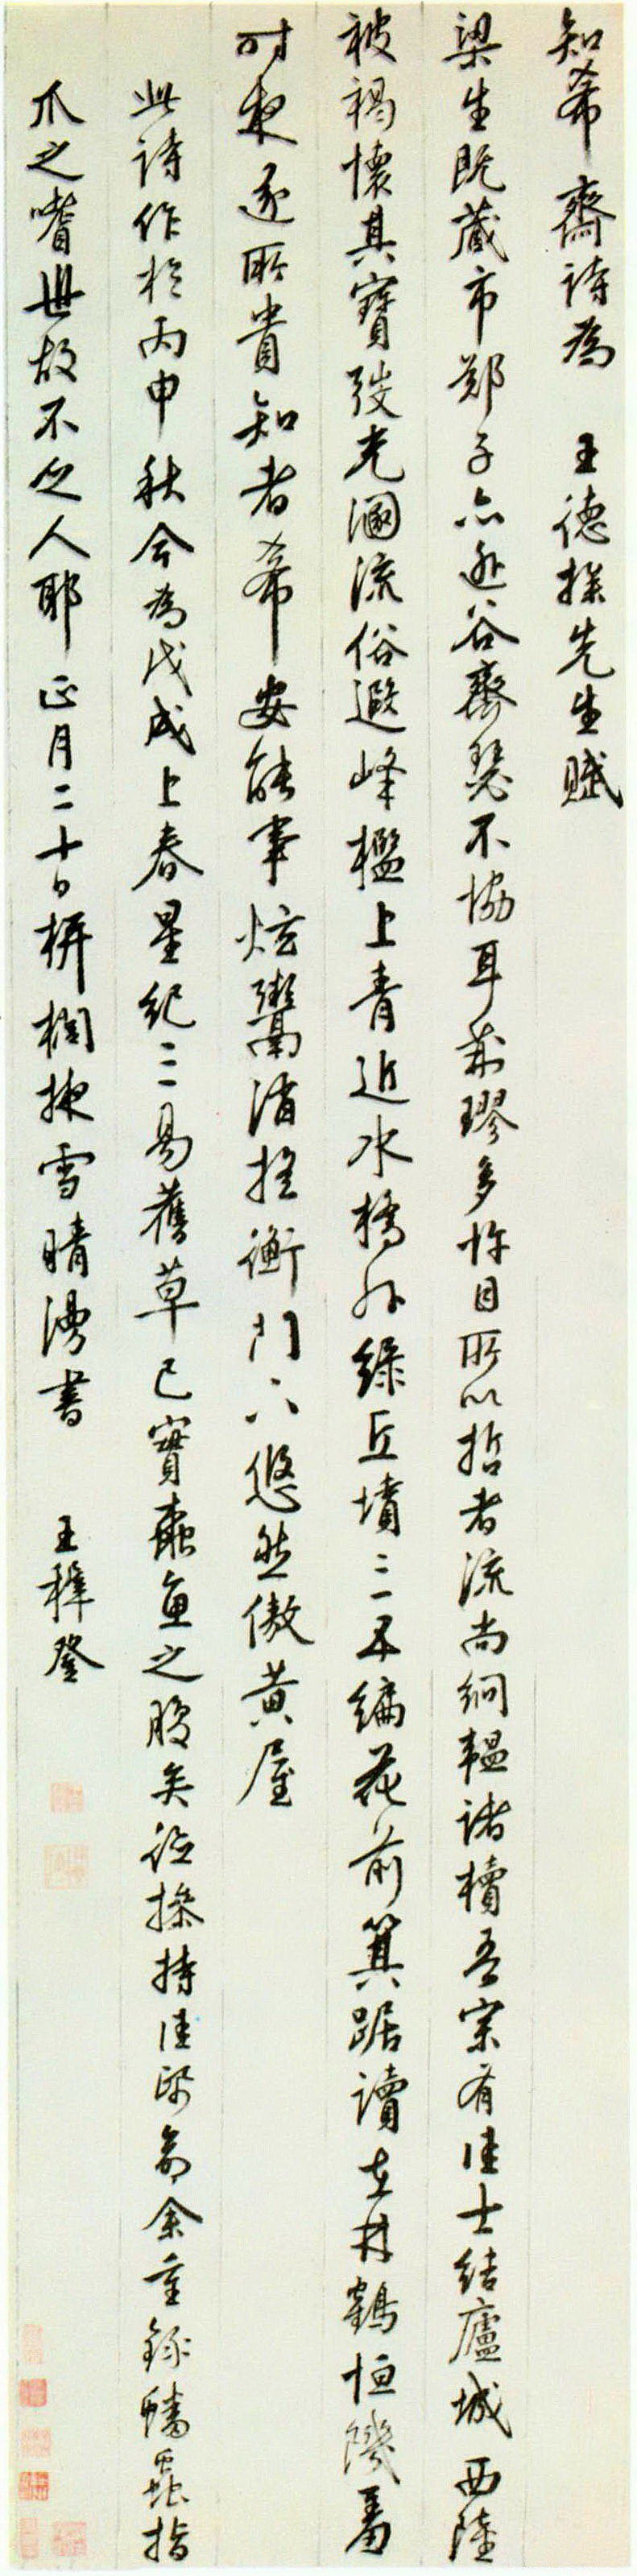 知希齋詩為 王德操先生賦
梁生既藏市鄭子亦逃谷齊瑟不協耳荊璆多怍目所以哲者流尚絅韞諸櫝吾宗有佳士結廬城西陸
被褐懷其寶弢光溷流俗遐峰檻上青近水橋外綠丘墳三五編花前箕踞讀在林鶴恒饑畜
時來逐所貴知者希安能事炫鬻消搖衡門下悠然傲黃屋
此詩作於丙申秋今為戊戌上春星紀三易舊草已實蠹魚之腹矣德操持佳紙命余重錄蟠蟲指
爪之嗜世故不乏人耶 正月二十日栟櫚掖雪晴漫書 王穉登